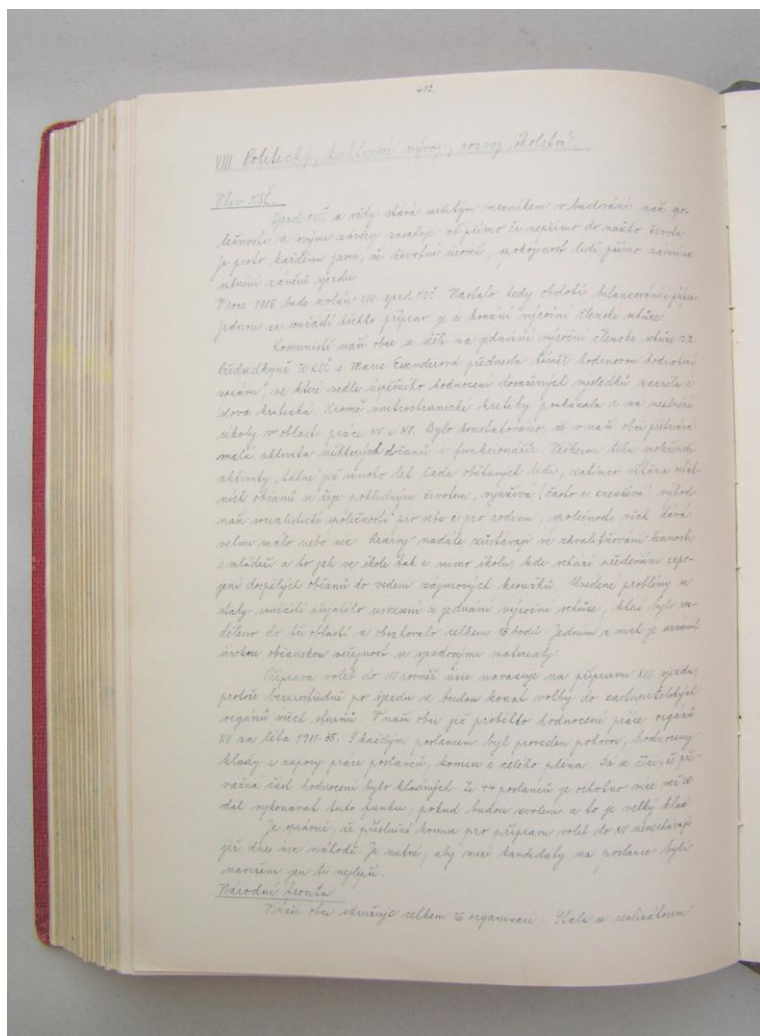 412
VIII Politický, kulturní vývoj, rozvoj školství:
Vliv KSČ.
Sjezd KSČ, se vždy stává určitým mezníkem v budování naší spo-
lečnosti a svými závěry zasahuje ať přímo či nepřímo do našeho života
Je proto každému jasné, že životní úroveň, spokojenost lidí přímo
plnění závěrů sjezdu
V roce 1986 bude svolán XVII sjezd KSČ. Nastalo tedy období bilancování a příprav
Jednou ze součástí těchto příprav je i konání výroční členské schůze
Komunisté naší obce se sešli na jednání výroční členské schůze
Předsedkyně ZO KSČ s. Marie přednesla téměř hodinovou hodnotící
zprávu, ve které vedle úspěšného hodnocení dosažených výsledků zazněla i
slova kritická. Kromě vnitrostranické kritiky poukázala i na neplnění
úkoly v oblasti práce NV a NF. Bylo konstatováno, že v naší obci přetrvává
malá aktivita některých občanů i funkcionářů. Veškerou tíhu
aktivity táhne již mnoho let řada obětavých lidí, zatímco většina ostat-
ních občanů si žije pohodlným životem, využívá (často i zneužívá) výhod
naší socialistické společnosti pro sebe a pro rodinu, společnosti však dává
velmi málo nebo nic. Rezervy nadále zůstávají ve zkvalitňování činnosti
s mládeží a to jak ve škole tak i mimo školu, kde schází především zapo-
jení dospělých občanů do vedení zájmových kroužků. Uvedené problémy se
staly součástí přijatého usnesení z jednání výroční schůze, které bylo roz-
děleno do tří oblastí a obsahovalo celkem 18 bodů. Jedním z nich je seznámit
širokou občanskou veřejnost se sjezdovými materiály.
Příprava voleb do NV rovněž úzce navazuje na přípravu XVII sjezdu,
protože bezprostředně po sjezdu se budou konat volby do zastupitelských
orgánů všech stupňů. V naší obci již proběhlo hodnocení práce orgánů
NV za léta 1981-85. S každým poslancem byl proveden pohovor, hodnoceny
klady i zápory práce poslanců, komisí a celého pléna. Dá se říci, že pře-
vážná část hodnocení bylo kladných. Ze 44 poslanců je ochotno více než
dál vykonávat tuto funkci, pokud budou zvoleni a to je velký klad.
Je správné, že příslušné komise pro přípravu voleb do NV nenechávají
již dnes nic náhodě. Je nutné, aby mezi kandidáty na poslance byli
navrženi jen ti nejlepší.
Národní fronta
V naší obci sdružuje celkem 16 organizací. Stala se realizátorem